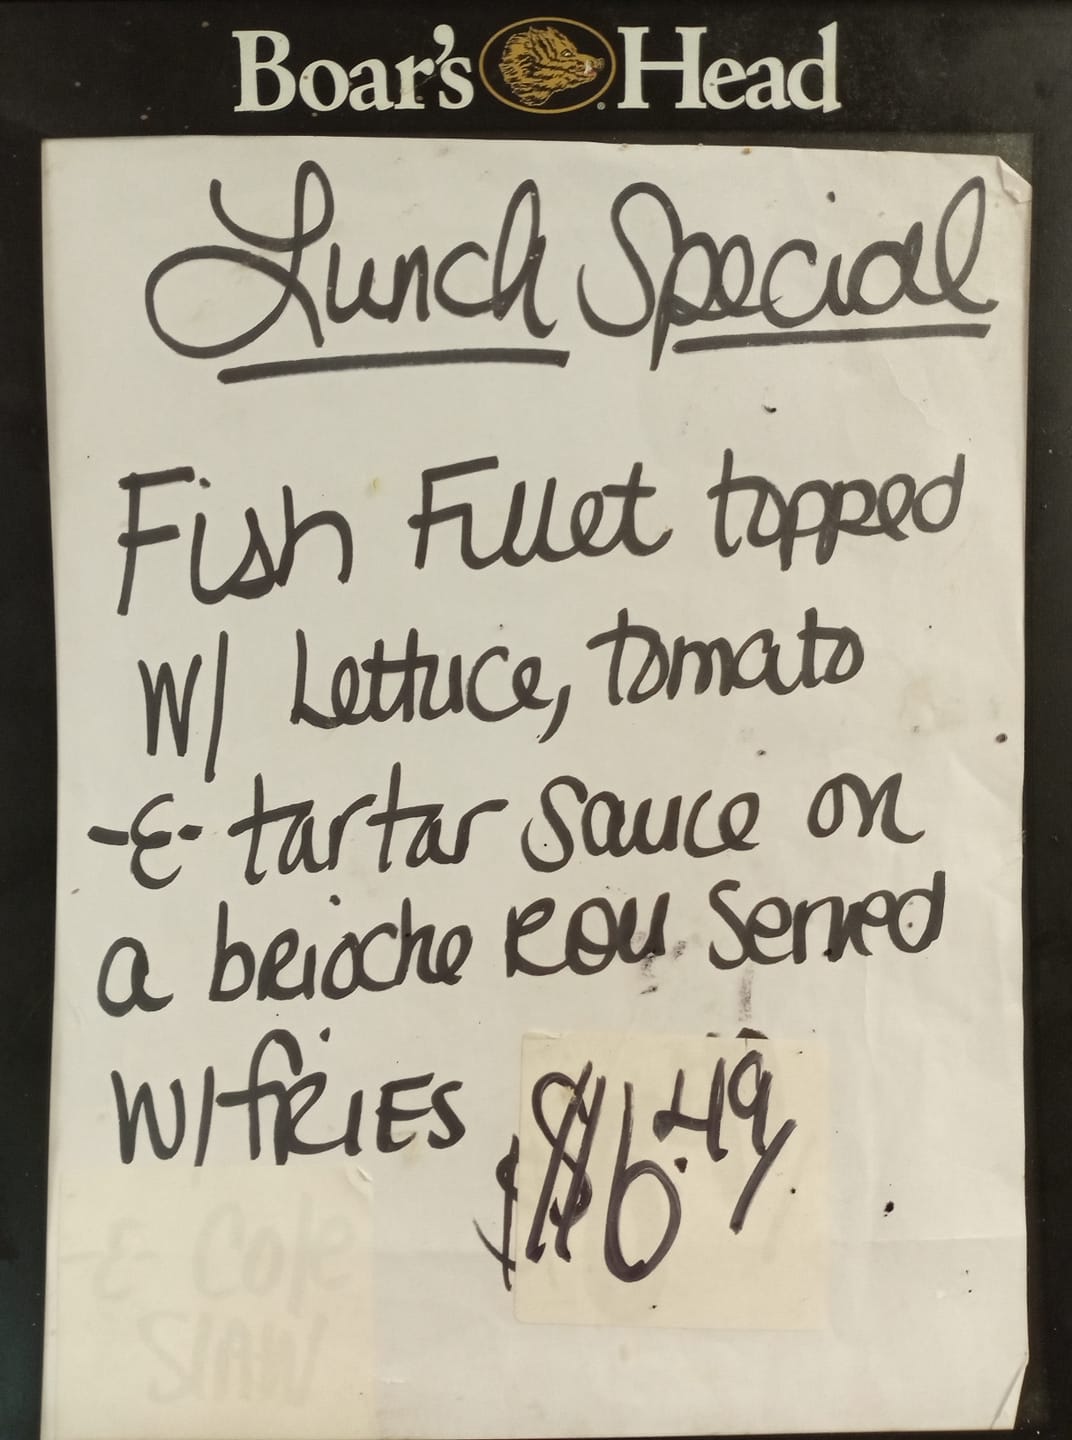 Boar's Head
Lunch Special
Fish Fillet topped
W/ Lettuce, tomato
-&- tartar Sauce on
a brioche Roll Served
W/fRIES
$16.49
-&- Cole
SlAW